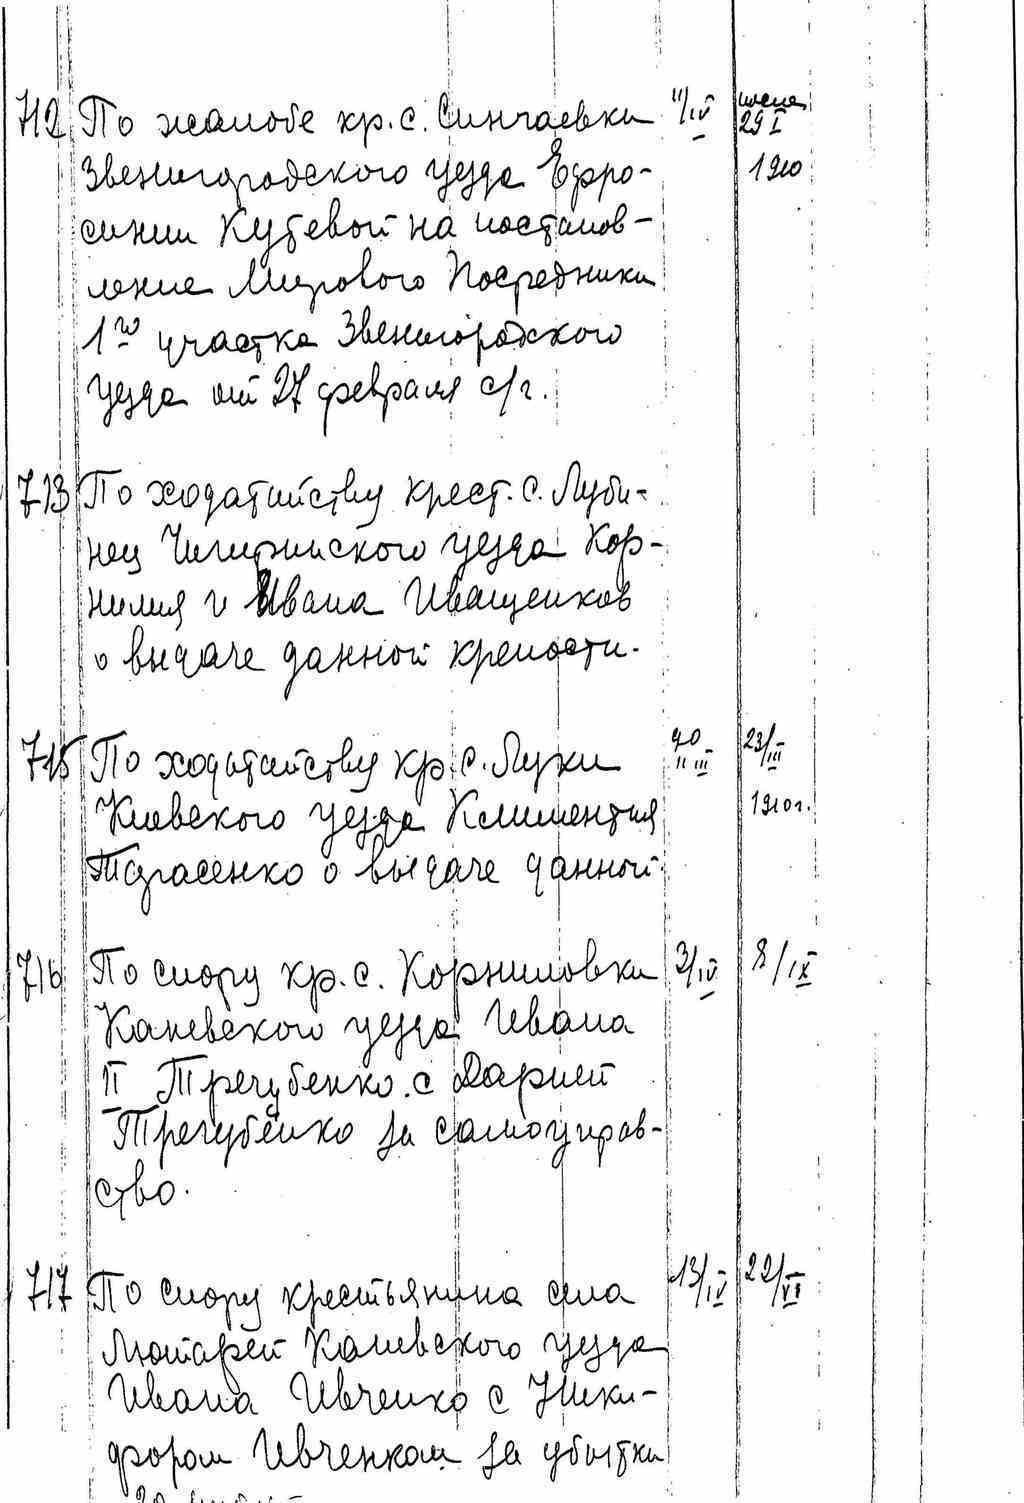 712 По жалобе кр. с. Синчаевки 11/IV
29 I
Звенигородского уезда Ефро- 1910
синии Кутевой на постанов-
ление Мирового Посредника
1го участка Звенигородского
уезда от 27 февраля с/г.
713 По ходатайству крест. с. Луби-
нец Чигиринского уезда Кор-
нилия и Ивана Иващенков
о выдаче данной крепости.
715 По ходатайству кр. с. Луки 23/III
Киевского уезда Климентия 1910 г.
Тарасенко о выдаче данной.
716 По спору кр. с. Корниловки 3/IV 8/IX
Каневского уезда Ивана
II Трегубенко с Дарией
Трегубенко за самоуправ-
ство.
717 По спору крестьянина села 13/IV 22/VI
Мотарей Каневского уезда
Ивана Ивченко с Ники-
фором Ивченком за убытки